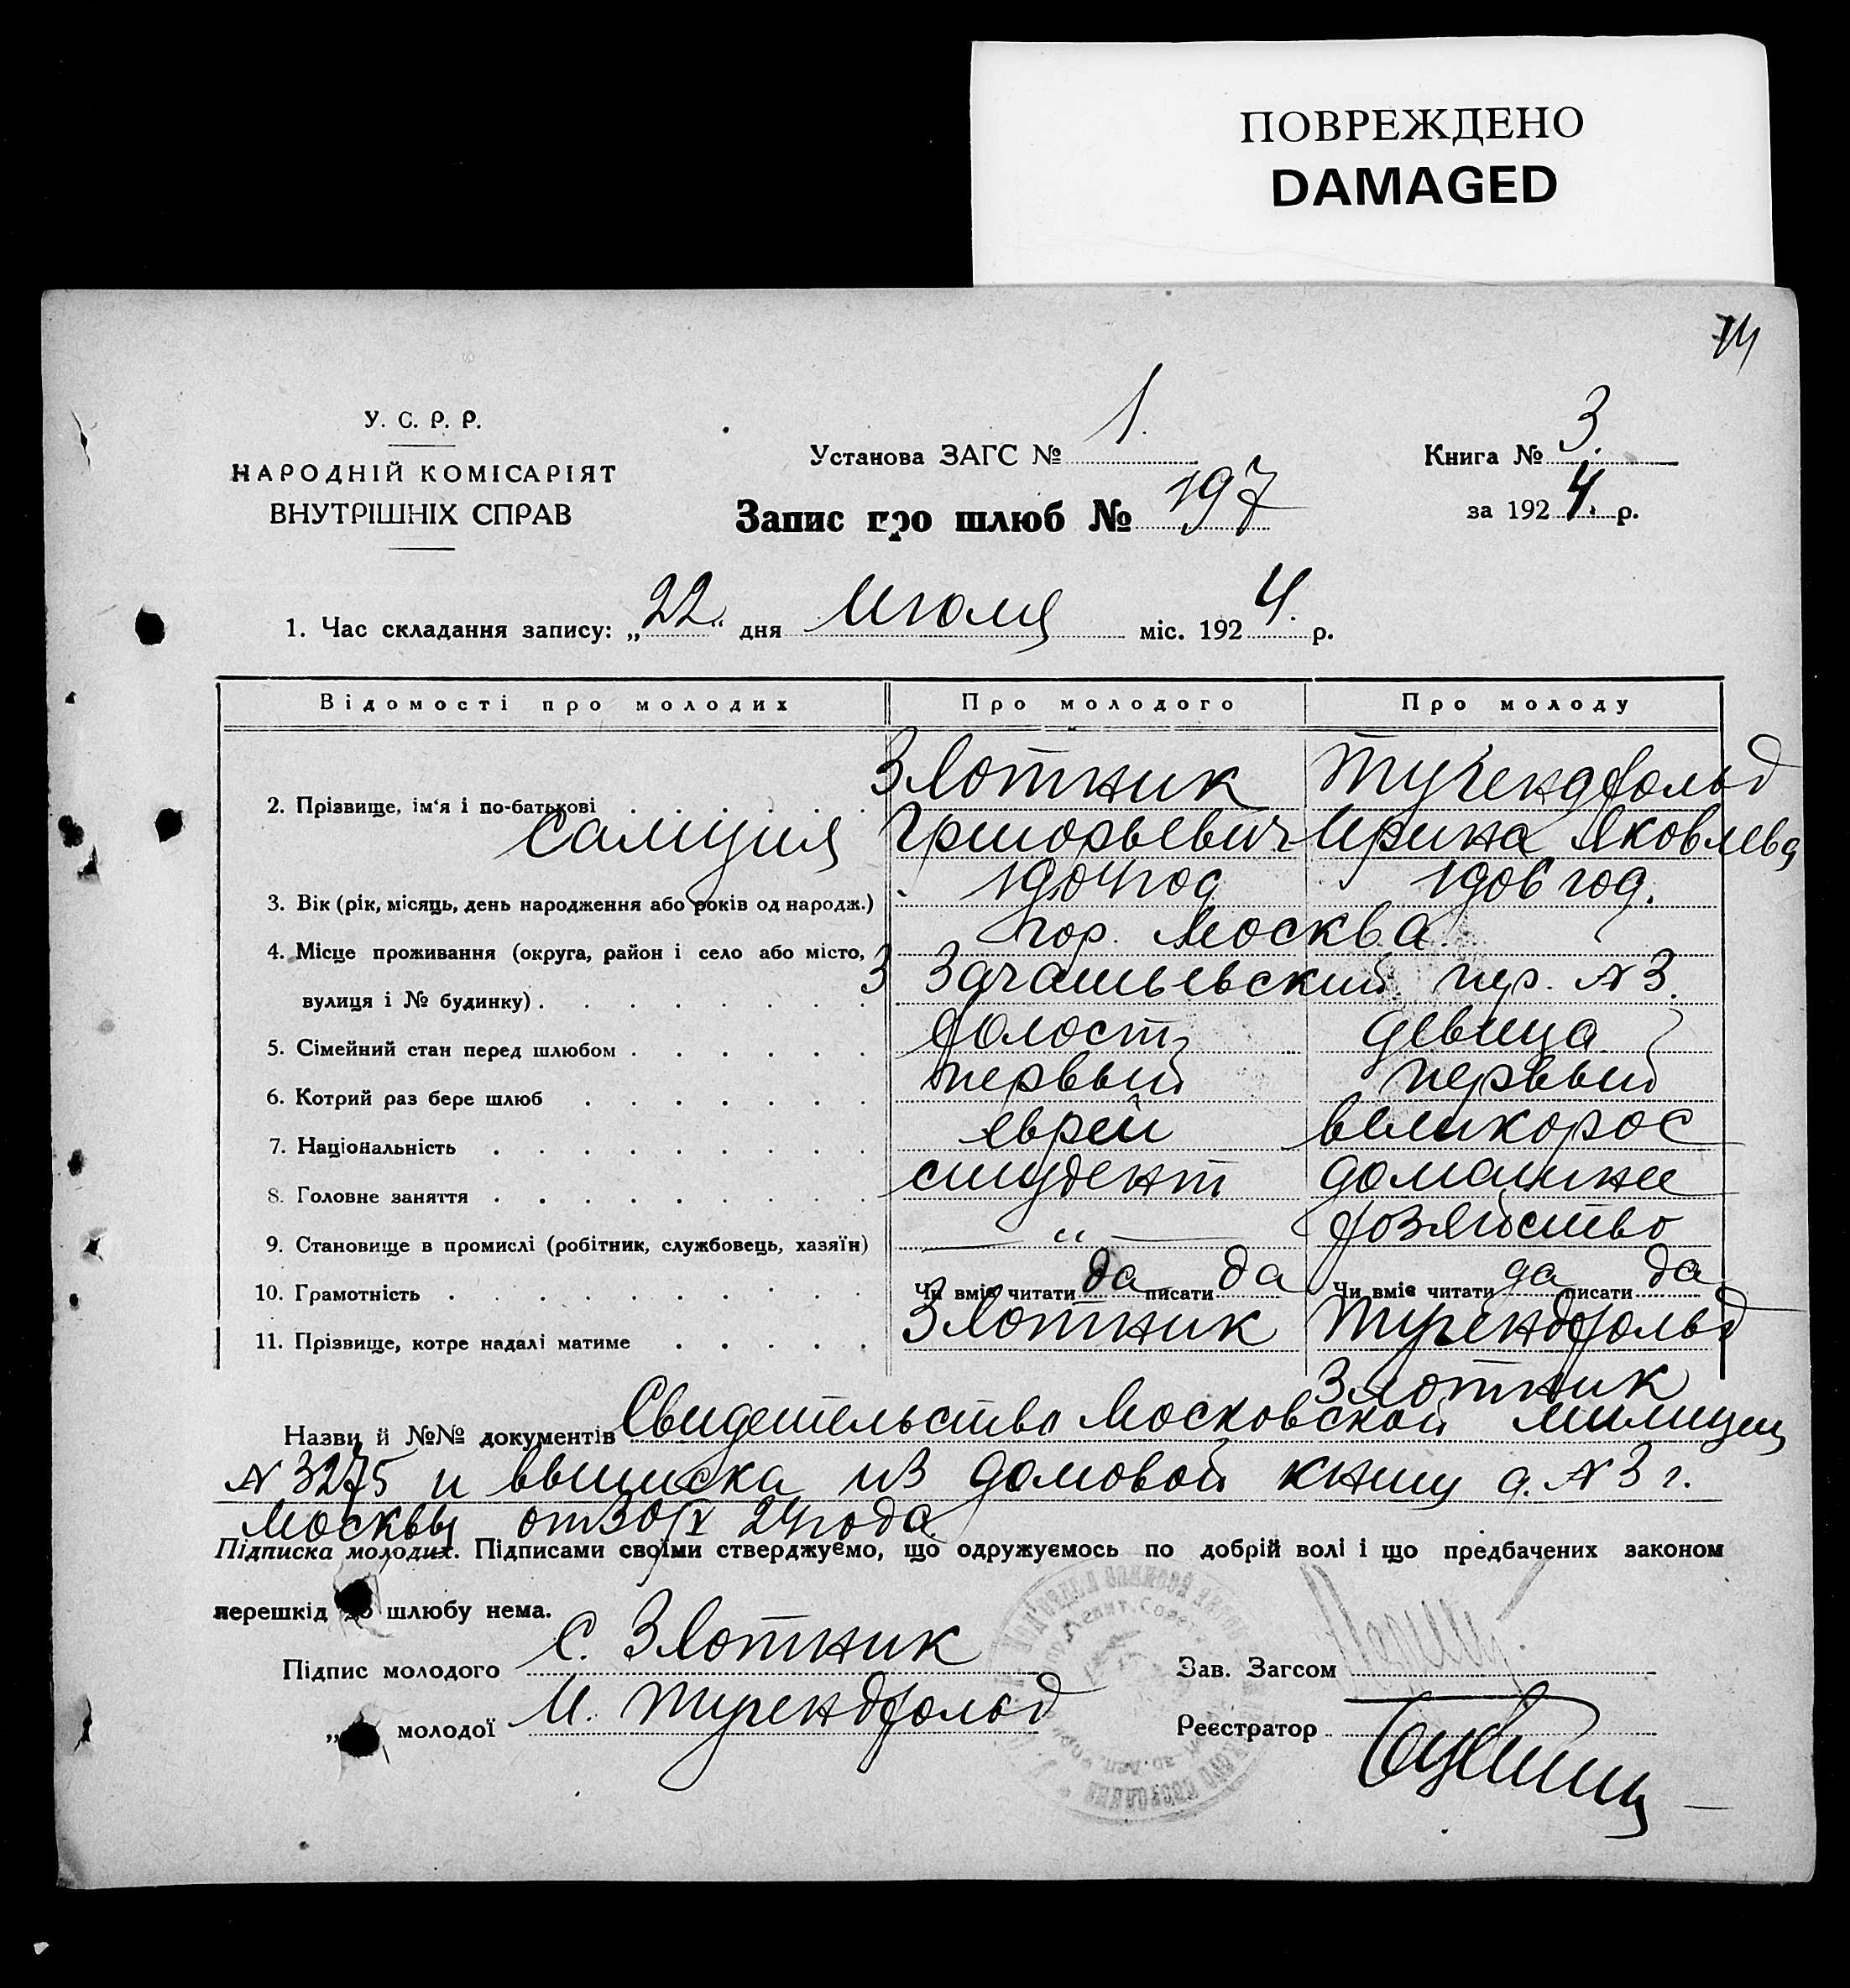 ПОВРЕЖДЕНО
DAMAGED
74
У. С. Р. Р.
НАРОДНІЙ КОМІСАРІЯТ
ВНУТРІШНІХ СПРАВ
Установа ЗАГС № 1.
Запис про шлюб № 197
Книга № 3.
за 1924. р.
1. Час складання запису: „22“ дня Июля міс. 1924. р.
Відомості про молодих Про молодого Про молоду
Злотник Тугендгольд
2. Прізвище, ім'я і по-батькові
Григорьевич Ирина Яковлева
1904 год 1906 год.
3. Вік (рік, місяць, день народження або років од народж.)
гор. Москва
4. Місце проживання (округа, район і село або місто,
3 Зачатьевский пер. № 3.
вулиця і № будинку)
5. Сімейний стан перед шлюбом холост девица
6. Котрий раз бере шлюб первый первый
7. Національність еврей великорос
8. Головне заняття студент домашнее
9. Становище в промислі (робітник, службовець, хазяїн) — „ — хозяйство
10. Грамотність Чи вміє читати да писати да Чи вміє читати да писати да
11. Прізвище, котре надалі матиме Злотник Тугендгольд
Злотник
Назви й №№ документів Свидетельство Московской милиции
№ 3275 и выписка из домовой книги д. № 3 г.
Москвы от 30/IV 24 года
Підписка молодих. Підписами своїми стверджуємо, що одружуємось по добрій волі і що предбачених законом
перешкід до шлюбу нема.
Підпис молодого С. Злотник
Зав. Загсом
„ молодої И. Тугендгольд
Реєстратор